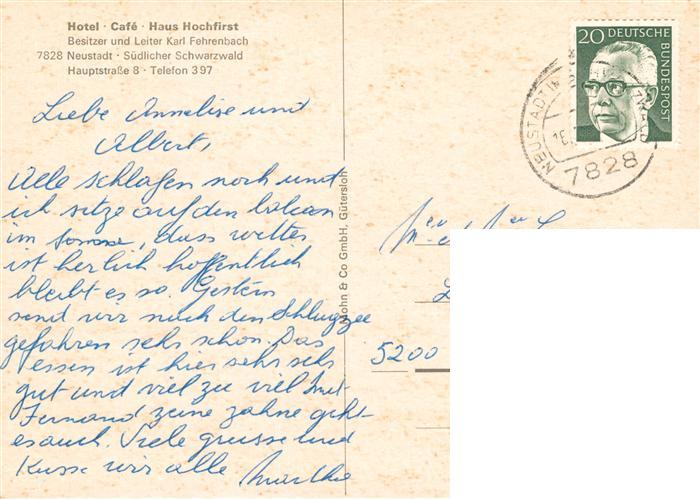 Hotel · Café · Haus Hochfirst
Besitzer und Leiter Karl Fehrenbach
7828 Neustadt · Südlicher Schwarzwald
Hauptstraße 8 · Telefon 3 97
Liebe Annelise und
Albert,
Alle schlafen noch und
ich sitze auf den balcan
im sonne, dass wetter
ist herlich hoffentlich
bleibt es so. Gestern
send wir nach den Schlugzee
gefahren sehr schon. Das
essen ist hier sehr sehr
gut und viel zu viel mit
Fernand zeine zahne geht
es auch. Viele grusse und
Kusse wir alle Marthe
Mohn & Co GmbH, Gütersloh
20 DEUTSCHE
BUNDESPOST
NEUSTADT
7828
5200